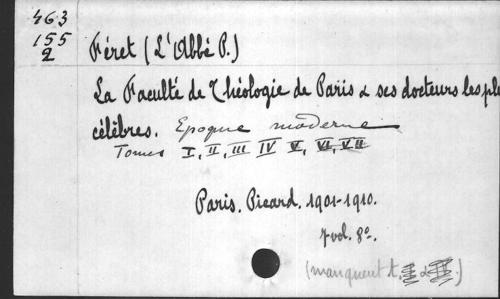 463
155
2
Féret (L'Abbé P.)
La Faculté de Théologie de Paris & ses docteurs les pl
célèbres. Epoque moderne
Tomes I, II, III IV V, VI, VII
Paris. Picard. 1901-1910.
7 vol. 8º.
(manquent t.